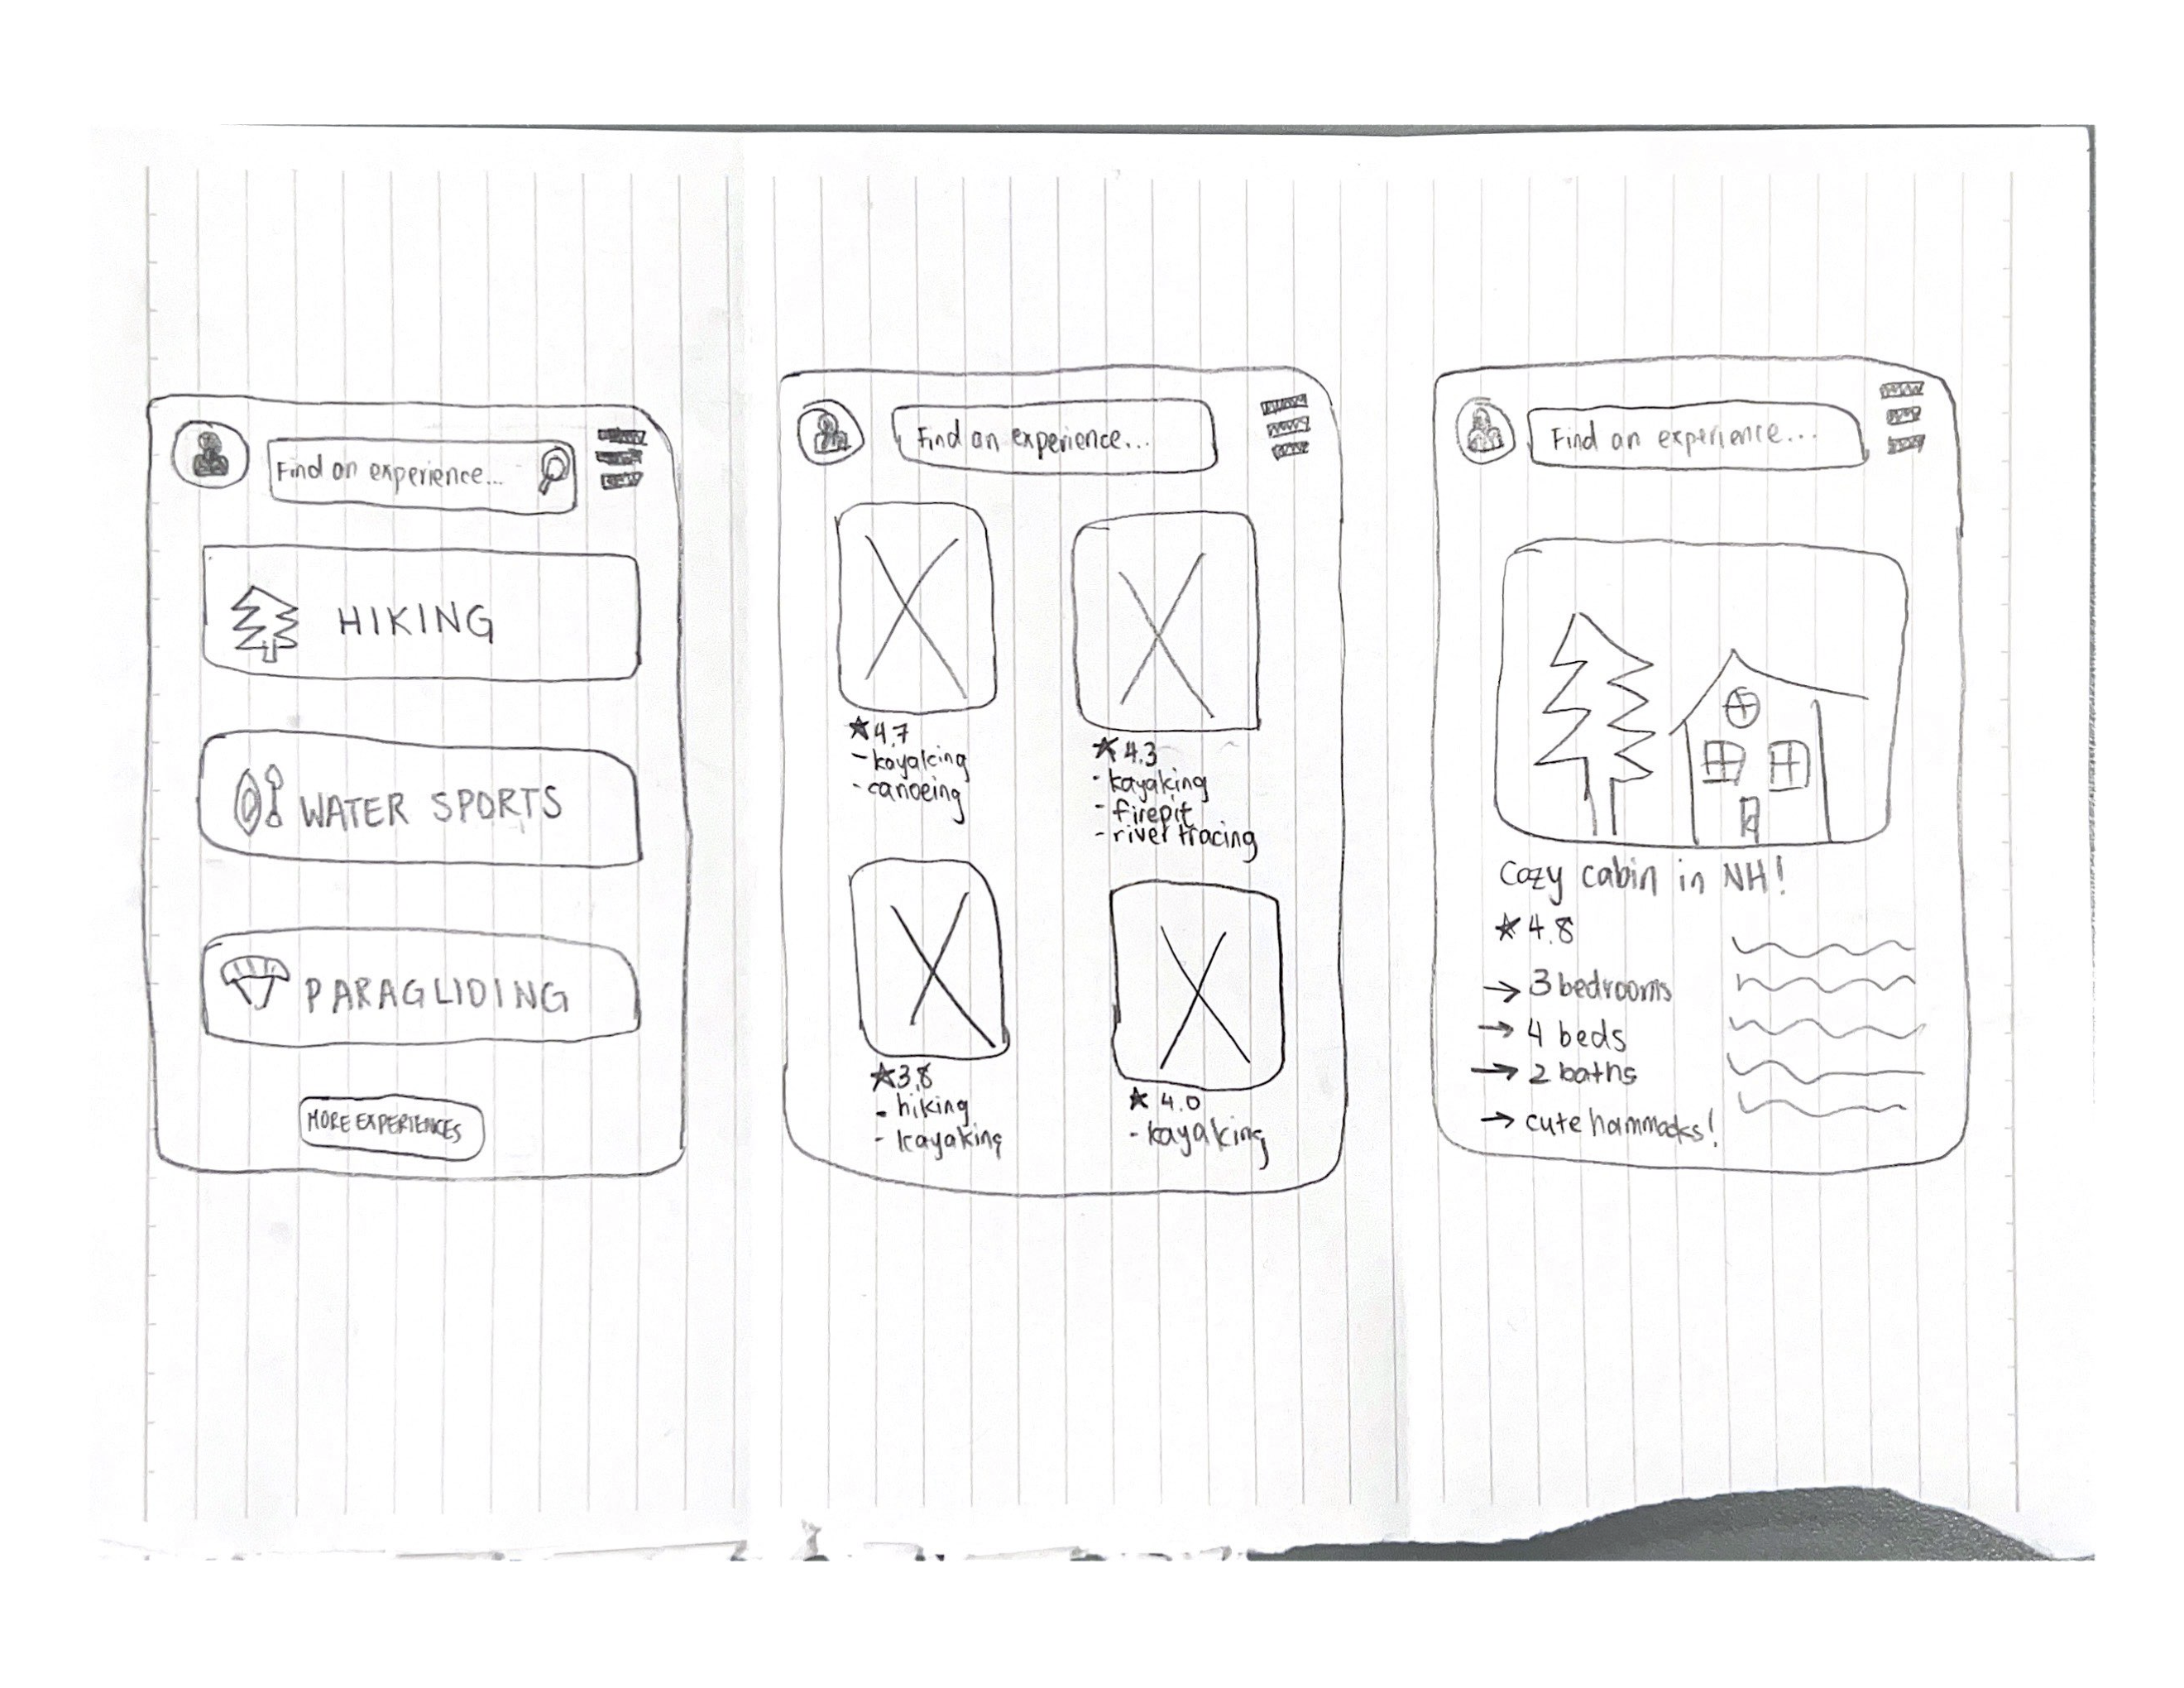 Find an experience...
HIKING
WATER SPORTS
PARAGLIDING
MORE EXPERIENCES
Find an experience...
★4.7
- kayaking
- canoeing
★4.3
- kayaking
- firepit
- river tracing
★3.8
- hiking
- kayaking
★ 4.0
- kayaking
Find an experience...
Cozy cabin in NH!
★ 4.8
→ 3 bedrooms
→ 4 beds
→ 2 baths
→ cute hammocks!